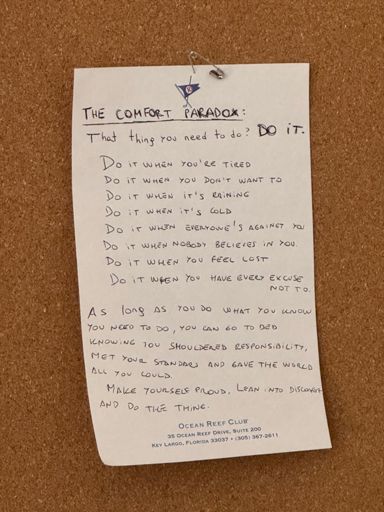 THE COMFORT PARADOX:
That thing you need to do? DO IT.
DO IT WHEN YOU'RE TIRED
DO IT WHEN YOU DON'T WANT TO
DO IT WHEN IT'S RAINING
DO IT WHEN IT'S COLD
DO IT WHEN EVERYONE'S AGAINST YOU
DO IT WHEN NOBODY BELIEVES IN YOU.
DO IT WHEN YOU FEEL LOST
DO IT WHEN YOU HAVE EVERY EXCUSE
NOT TO.
AS long AS YOU DO WHAT YOU KNOW
YOU NEED TO DO, YOU CAN GO TO BED
KNOWING YOU SHOULDERED RESPONSIBILITY,
MET YOUR STANDARDS AND GAVE THE WORLD
ALL YOU COULD.
MAKE YOURSELF PROUD. LEAN INTO DISCOMFORT
AND DO THE THING.
OCEAN REEF CLUB
35 OCEAN REEF DRIVE, SUITE 200
KEY LARGO, FLORIDA 33037 • (305) 367-2611